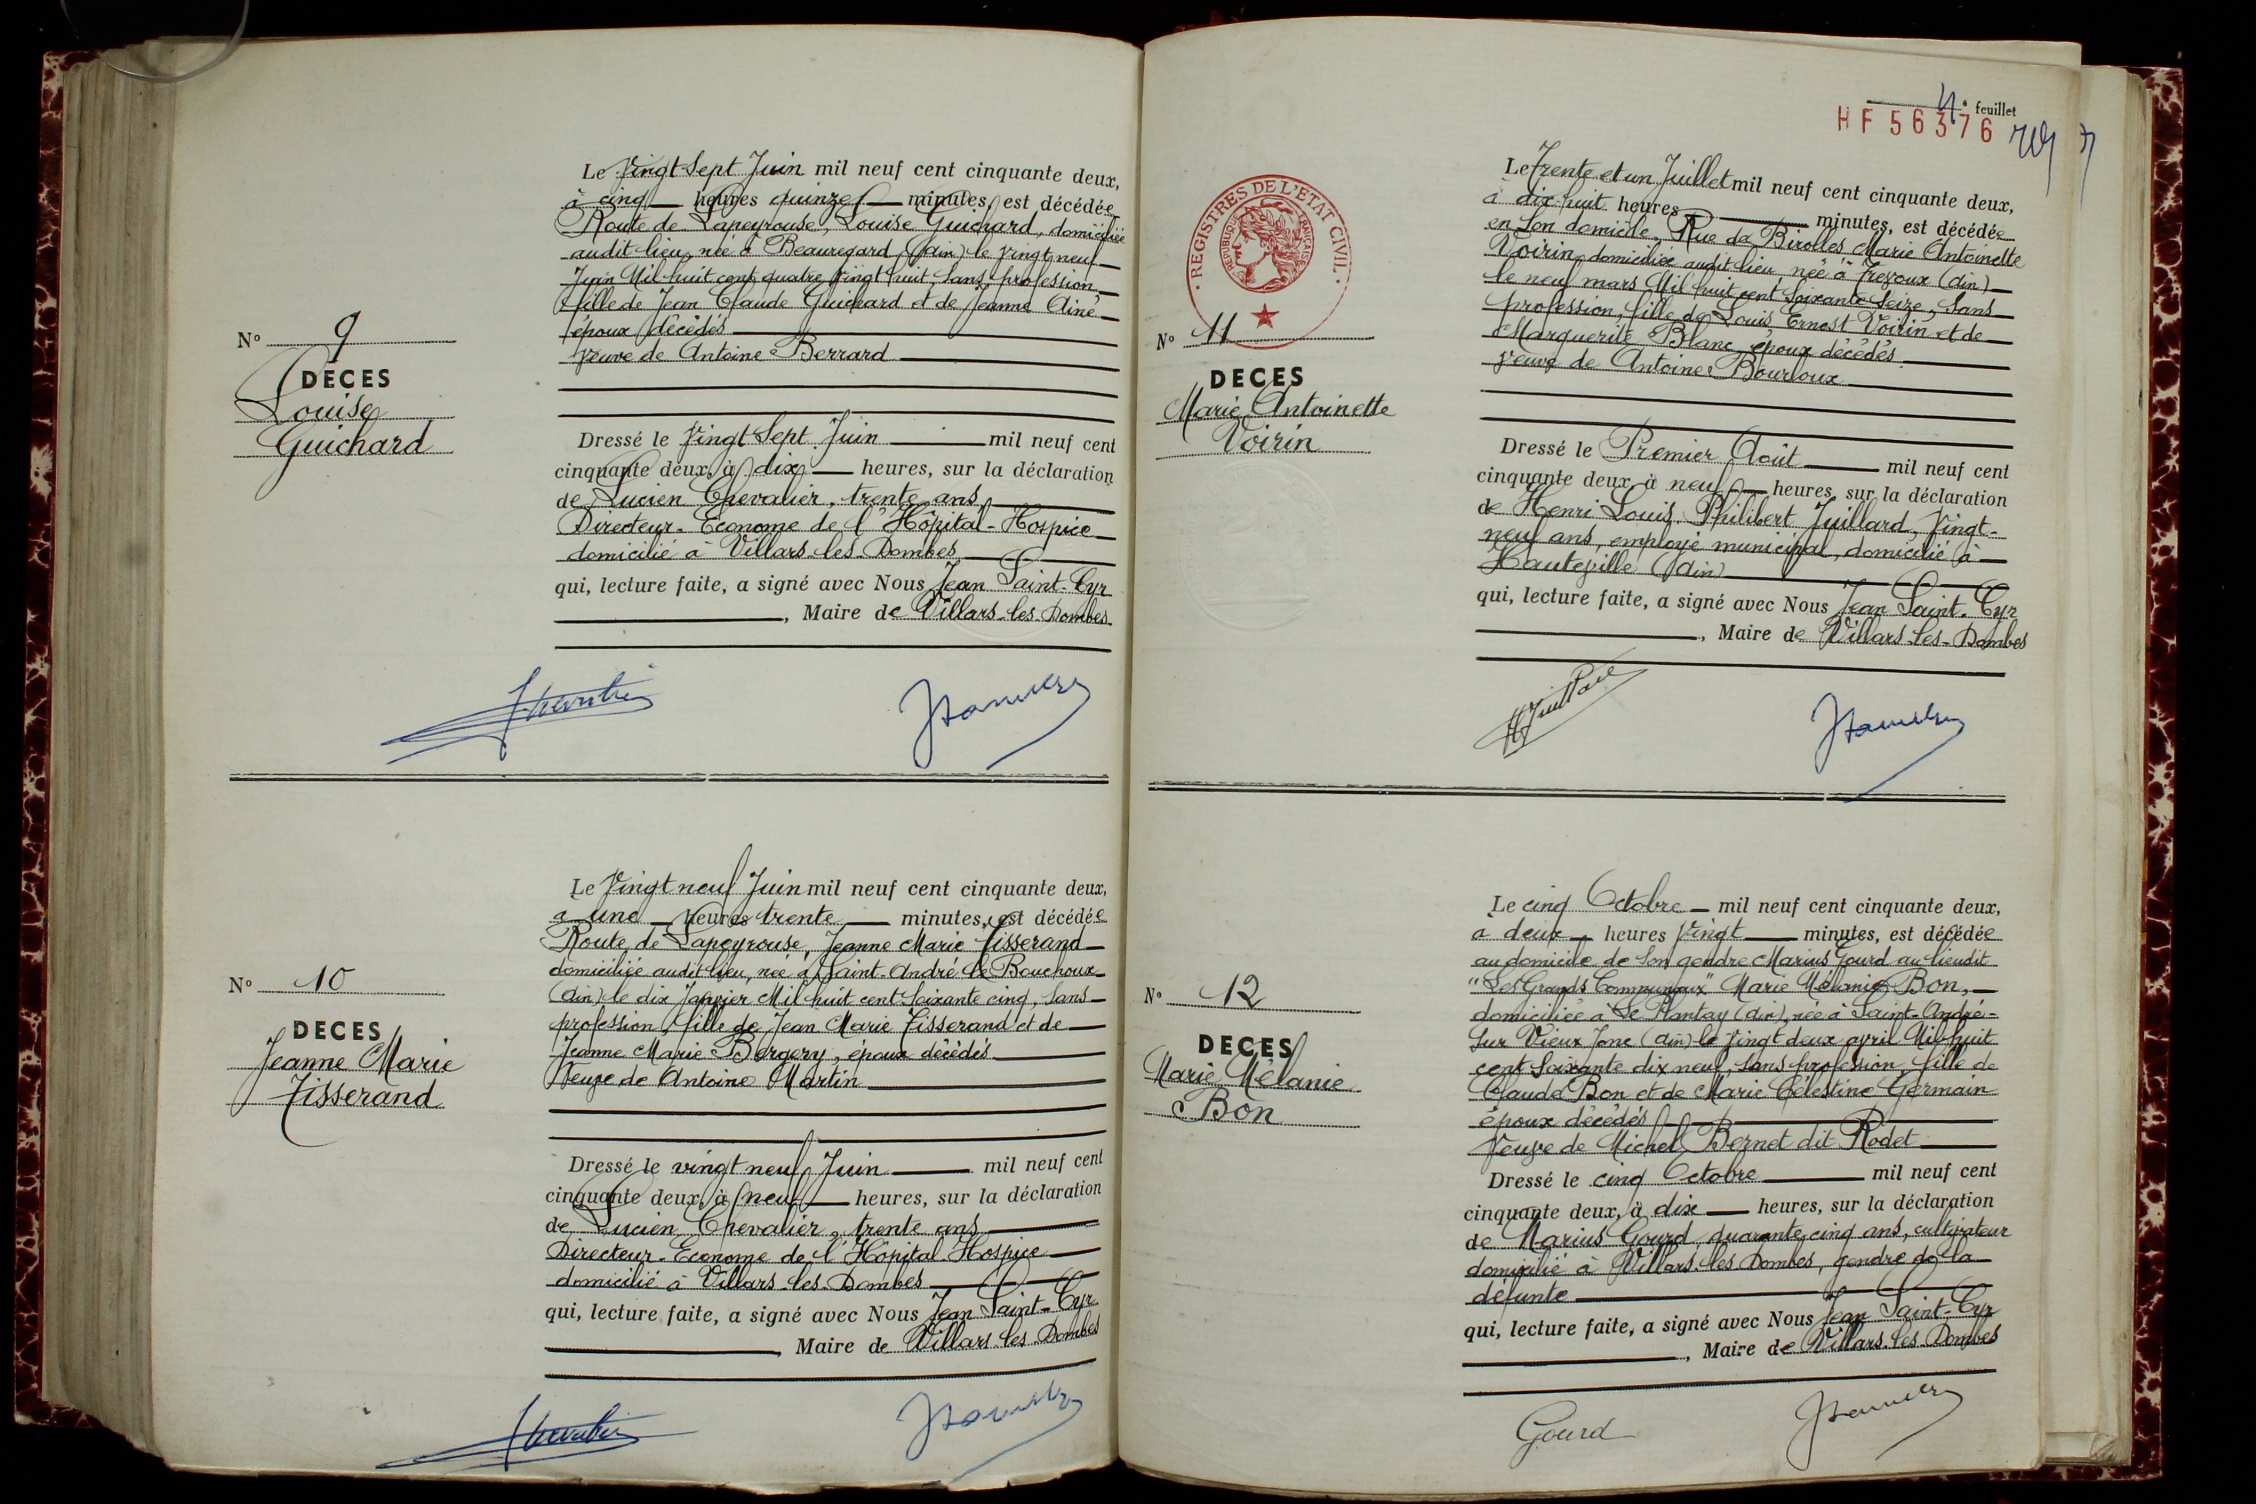 N° 9
DECES
Louise
Guichard
Le Vingt Sept Juin mil neuf cent cinquante deux,
à cinq heures quinze minutes, est décédée
Route de Lapeyrouse, Louise Guichard, domiciliée
audit lieu, née à Beauregard (Ain) le Vingt neuf
Juin Mil huit cent quatre vingt huit, sans profession
fille de Jean Claude Guichard et de Jeanne Ainé
époux décédés
Veuve de Antoine Berrard
Dressé le Vingt Sept Juin mil neuf cent
cinquante deux, à dix heures, sur la déclaration
de Lucien Chevalier, trente ans
Directeur-Econome de l'Hôpital-Hospice
domicilié à Villars-les-Dombes
qui, lecture faite, a signé avec Nous Jean Saint-Cyr
, Maire de Villars-les-Dombes
N° 10
DECES
Jeanne Marie
Tisserand
Le Vingt neuf Juin mil neuf cent cinquante deux,
à une heures trente minutes, est décédée
Route de Lapeyrouse, Jeanne Marie Tisserand
domiciliée audit lieu, née à Saint-André le Bouchoux
(Ain) le dix Janvier Mil huit cent soixante cinq, sans
profession, fille de Jean Marie Tisserand et de
Jeanne Marie Bergery, époux décédés
Veuve de Antoine Martin
Dressé le vingt neuf Juin mil neuf cent
cinquante deux, à neuf heures, sur la déclaration
de Lucien Chevalier, trente ans
Directeur-Econome de l'Hôpital-Hospice
domicilié à Villars-les-Dombes
qui, lecture faite, a signé avec Nous Jean Saint-Cyr
, Maire de Villars-les-Dombes
4e feuillet
HF 56376
REGISTRES DE L'ETAT CIVIL
REPUBLIQUE FRANÇAISE
N° 11
DECES
Marie Antoinette
Voirin
Le Trente et un Juillet mil neuf cent cinquante deux,
à dix huit heures minutes, est décédée
en son domicile, Rue de Birolles Marie Antoinette
Voirin, domiciliée audit lieu née à Trevoux (Ain)
le neuf mars Mil huit cent soixante seize, sans
profession, fille de Louis Ernest Voirin et de
Marguerite Blanc, époux décédés
veuve de Antoine Bourloux
Dressé le Premier Août mil neuf cent
cinquante deux, à neuf heures, sur la déclaration
de Henri Louis Philibert Juillard, Vingt-
neuf ans, employé municipal, domicilié à
Hauteville (Ain)
qui, lecture faite, a signé avec Nous Jean Saint-Cyr
, Maire de Villars-les-Dombes
HJuillard
N° 12
DECES
Marie Mélanie
Bon
Le cinq Octobre mil neuf cent cinquante deux,
à deux heures vingt minutes, est décédée
au domicile de son gendre Marius Gourd au lieudit
"Les Grands Communaux" Marie Mélanie Bon,
domiciliée à Le Plantay (Ain), née à Saint-André-
sur Vieux Jonc (Ain) le vingt deux avril Mil huit
cent soixante dix neuf, sans profession, fille de
Claude Bon et de Marie Célestine Germain
époux décédés
Veuve de Michel Bernet dit Rodet
Dressé le cinq Octobre mil neuf cent
cinquante deux, à dix heures, sur la déclaration
de Marius Gourd, quarante cinq ans, cultivateur
domicilié à Villars-les-Dombes, gendre de la
défunte
qui, lecture faite, a signé avec Nous Jean Saint-Cyr
, Maire de Villars-les-Dombes
Gourd